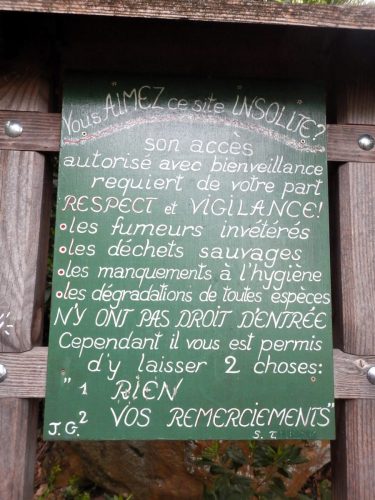 Vous AIMEZ ce site INSOLITE?
son accès
autorisé avec bienveillance
requiert de votre part
RESPECT et VIGILANCE!
•les fumeurs invétérés
•les déchets sauvages
•les manquements à l'hygiène
•les dégradations de toutes espèces
N'Y ONT PAS DROIT D'ENTRÉE
Cependant il vous est permis
d'y laisser 2 choses:
"1 RIEN
2 VOS REMERCIEMENTS"
J.G. S.T.